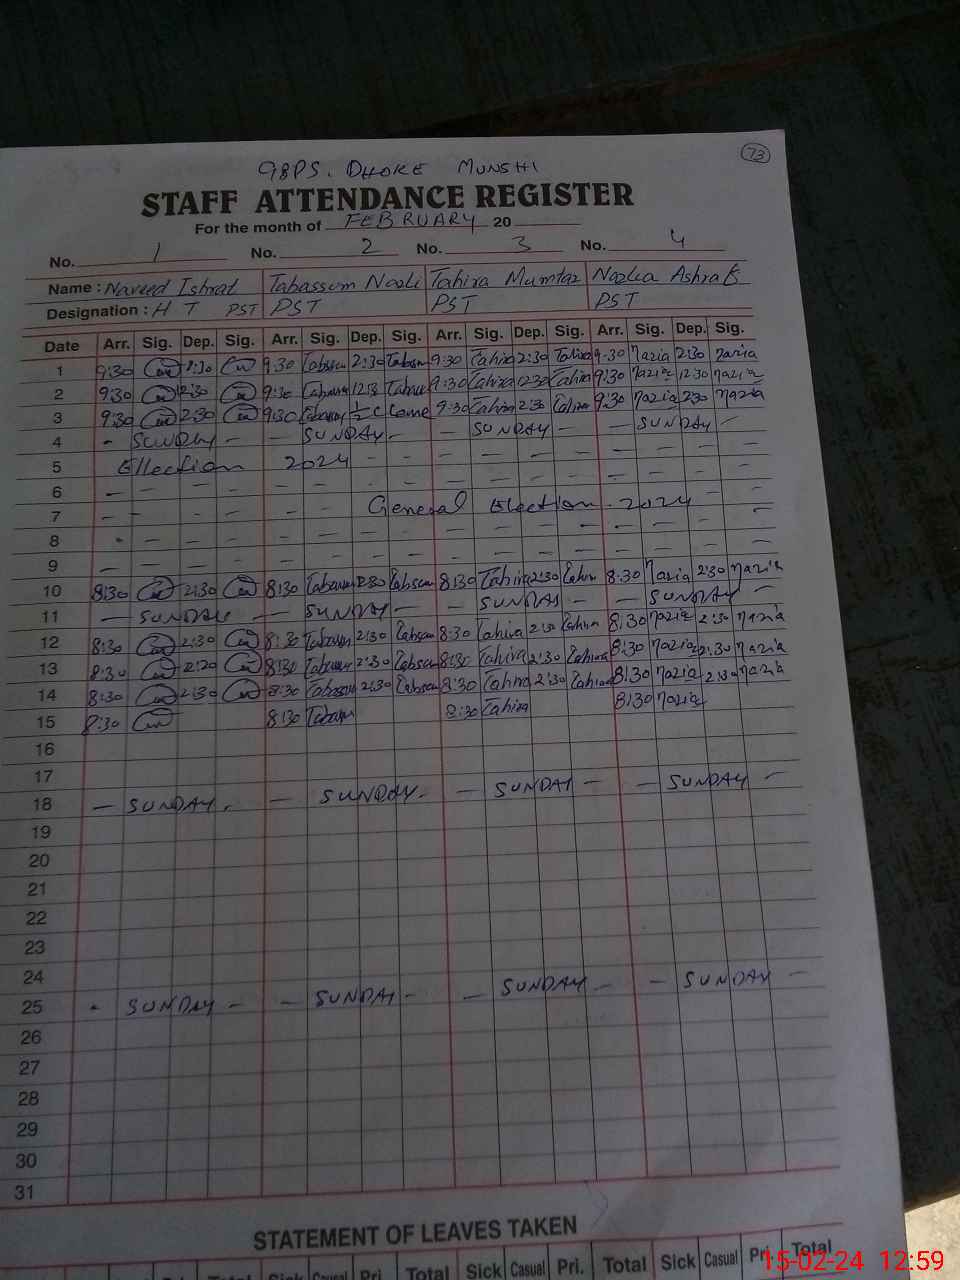 73
GBPS. DHOKE MUNSHI
STAFF ATTENDANCE REGISTER
For the month of FEBRUARY 20
No. 1 No. 2 No. 3 No. 4
Name : Naveed Ishrat Tabassum Nazli Tahira Mumtaz Nazia Ashraf
Designation : H T PST PST PST PST
Date Arr. Sig. Dep. Sig. Arr. Sig. Dep. Sig. Arr. Sig. Dep. Sig. Arr. Sig. Dep. Sig.
1 9:30 9:30 2:30 9:30 Tahira 2:30 Tahira 9:30 Nazia 2:30 Nazia
2 9:30 12:30 9:30 9:30 Tahira 12:30 Tahira 9:30 Nazia 12:30 Nazia
3 9:30 2:30 9:30 9:30 Tahira 2:30 Tahira 9:30 Nazia 2:30 Nazia
4 - SUNDAY - - SUNDAY - - SUNDAY - - SUNDAY -
5 Ellection 2024 - - - - - - - - - -
6 - - - - - - - - - - - - - - - -
7 - - - - - - General Election - 2024 - -
8 - - - - - - - - - - - - - - - -
9 - - - - - - - - - - - - - - - -
10 8:30 2:30 8:30 2:30 8:30 Tahira 2:30 Tahira 8:30 Nazia 2:30 Nazia
11 - SUNDAY - - SUNDAY - - SUNDAY - - SUNDAY -
12 8:30 2:30 8:30 2:30 8:30 Tahira 2:30 Tahira 8:30 Nazia 2:30 Nazia
13 8:30 2:20 8:30 2:30 8:30 Tahira 2:30 Tahira 8:30 Nazia 2:30 Nazia
14 8:30 2:30 8:30 2:30 8:30 Tahira 2:30 Tahira 8:30 Nazia 2:30 Nazia
15 8:30 8:30 8:30 Tahira 8:30 Nazia
16
17
18 - SUNDAY - - SUNDAY - - SUNDAY - - SUNDAY -
19
20
21
22
23
24
25 - SUNDAY - - SUNDAY - - SUNDAY - - SUNDAY -
26
27
28
29
30
31
STATEMENT OF LEAVES TAKEN
Total Sick Casual Pri. Total Sick Casual Pri. Total Sick Casual Pri. Total
15-02-24 12:59